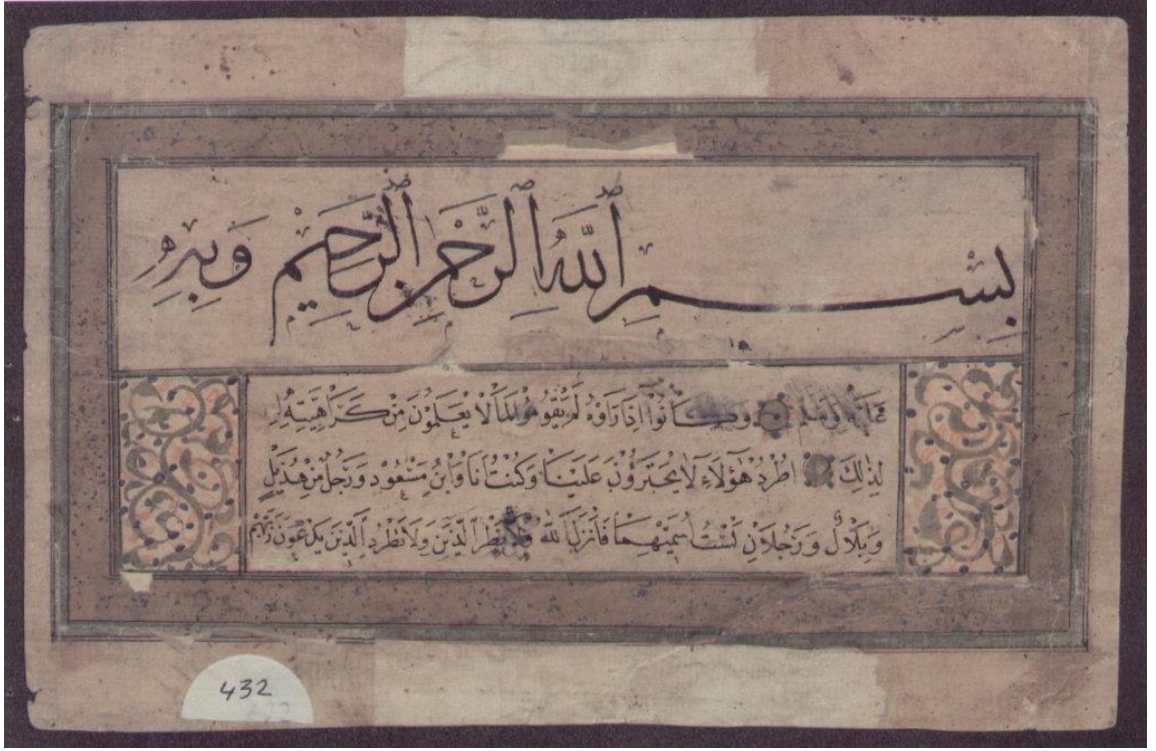 بِسْمِ اللهِ الرَّحْمٰنِ الرَّحِيمِ وَبِهِ
وَكَانُوا اِذَا رَاَوْهُ لَمْ يَقُومُوا لِمَا لَا يَعْلَمُونَ مِنْ كَرَاهِيَتِهِ
لِذٰلِكَ اطْرُدْ هٰؤُلَاءِ لَا يَجْتَرِؤُنَ عَلَيْنَا وَكُنْتُ اَنَا وَابْنُ مَسْعُودٍ وَرَجُلٌ مِنْ هُذَيْلٍ
وَبِلَالٌ وَرَجُلَانِ لَسْتُ اُسَمِّيهِمَا فَاَنْزَلَ اللهُ وَلَا تَطْرُدِ الَّذِينَ يَدْعُونَ رَبَّهُمْ
432